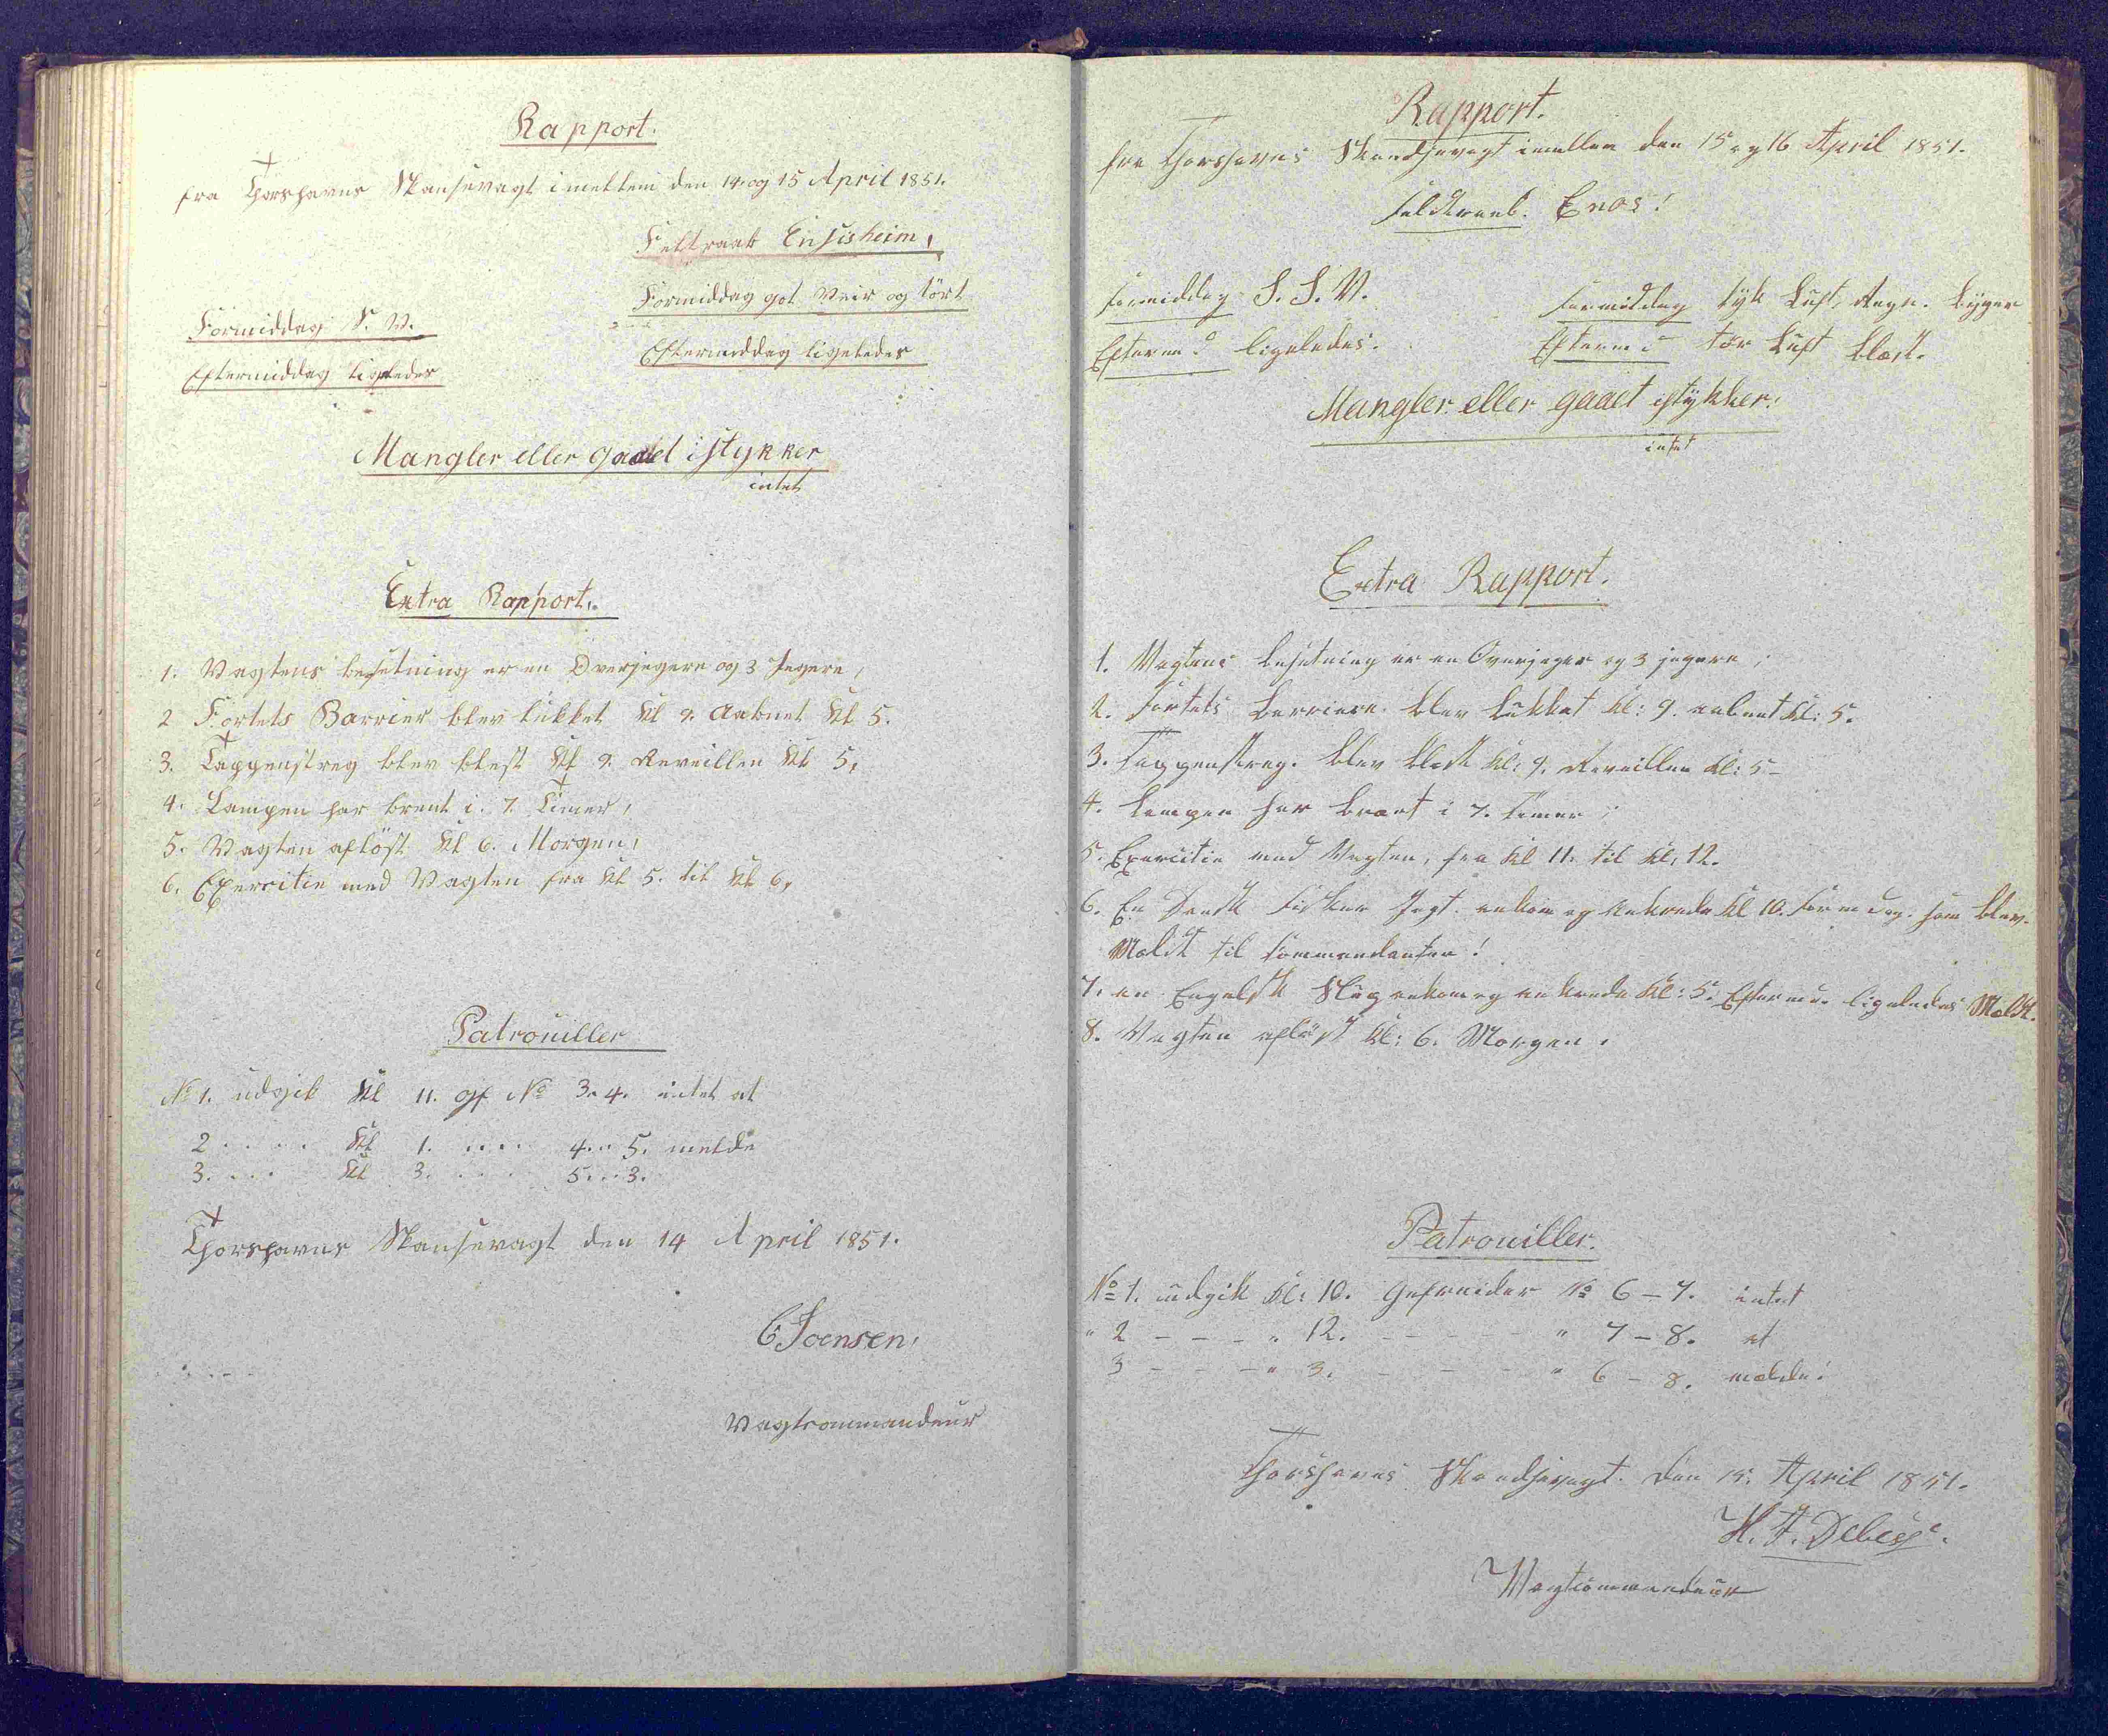 Rapport.
fra Thorshavns Skansevagt imellem den 14. og 15 April 1851.
Feltraab Ensisheim,
Formiddag S. V.
Formiddag got Veir og tört
Eftermiddag ligeledes
Eftermiddag ligeledes
Mangler eller gaaet i stykker
intet
Extra Rapport.
1. Vagtens besetning er en Overjegere og 3 Jegere,
2 Fortets Barrier blev lukket Kl 9. Aabnet Kl 5.
3. Tappenstreg blev blest Kl 9. Reveillen Kl 5,
4. Lampen har brent i 7. Timer,
5. Vagten aflöst Kl 6. Morgen,
6. Exercitie med Vagten fra Kl 5. til Kl 6,
Patrouiller
No 1. udgik Kl 11. Gf No 3. 4. intet at
2 .... Kl 1. .... 4... 5. melde
3. ... Kl 3. ... 5... 3.
Thorshavns Skansevagt den 14 April 1851.
C Joensen,
Vagtcommandeur
Rapport.
fra Thorshavns Skandsevagt imellem den 15 og 16 April 1851.
Feldtraab. Enos!
Formiddag S. S. V.
Formiddag tyk Luft, Regn. Byger
Efterm d ligeledes.
Efterm d tör Luft blæst.
Mangler eller gaaet istykker.
intet
Extra Rapport.
1. Vagtens besetning er en Overjeger og 3 jegere,
2. Fortets Barriere blev lukket Kl: 9. aabnet Kl: 5.
3. Tappenstreg. blev blæst Kl: 9. Reveillen Kl: 5 -
4. Lampen har brænt i 7. Timer,
5. Exercitie med Vagten, fra Kl 11. til Kl. 12.
6. En Dansk Fisker Jagt ankom og Ankrede Kl 10. Form dag. som blev.
Meldt til Commandanten!
7. en Engelsk Slup ankom og ankrede Kl: 5. Efterm d. ligeledes Meldt.
8. Vagten aflöst Kl: 6. Morgen.
Patrouiller.
No 1. udgik Kl: 10. Gefreider No 6 - 7. intet
" 2 - - - " 12. - - - - " 7 - 8. at
3 - - - " 3. - - - " 6 - 8. melde.
Thorshavns Skandsevagt. Den 15. April 1851.
H. J. Debess.
Vagtcommandeur